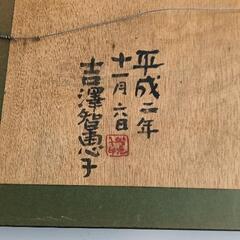 平成二年
十一月六日
吉澤智恵子